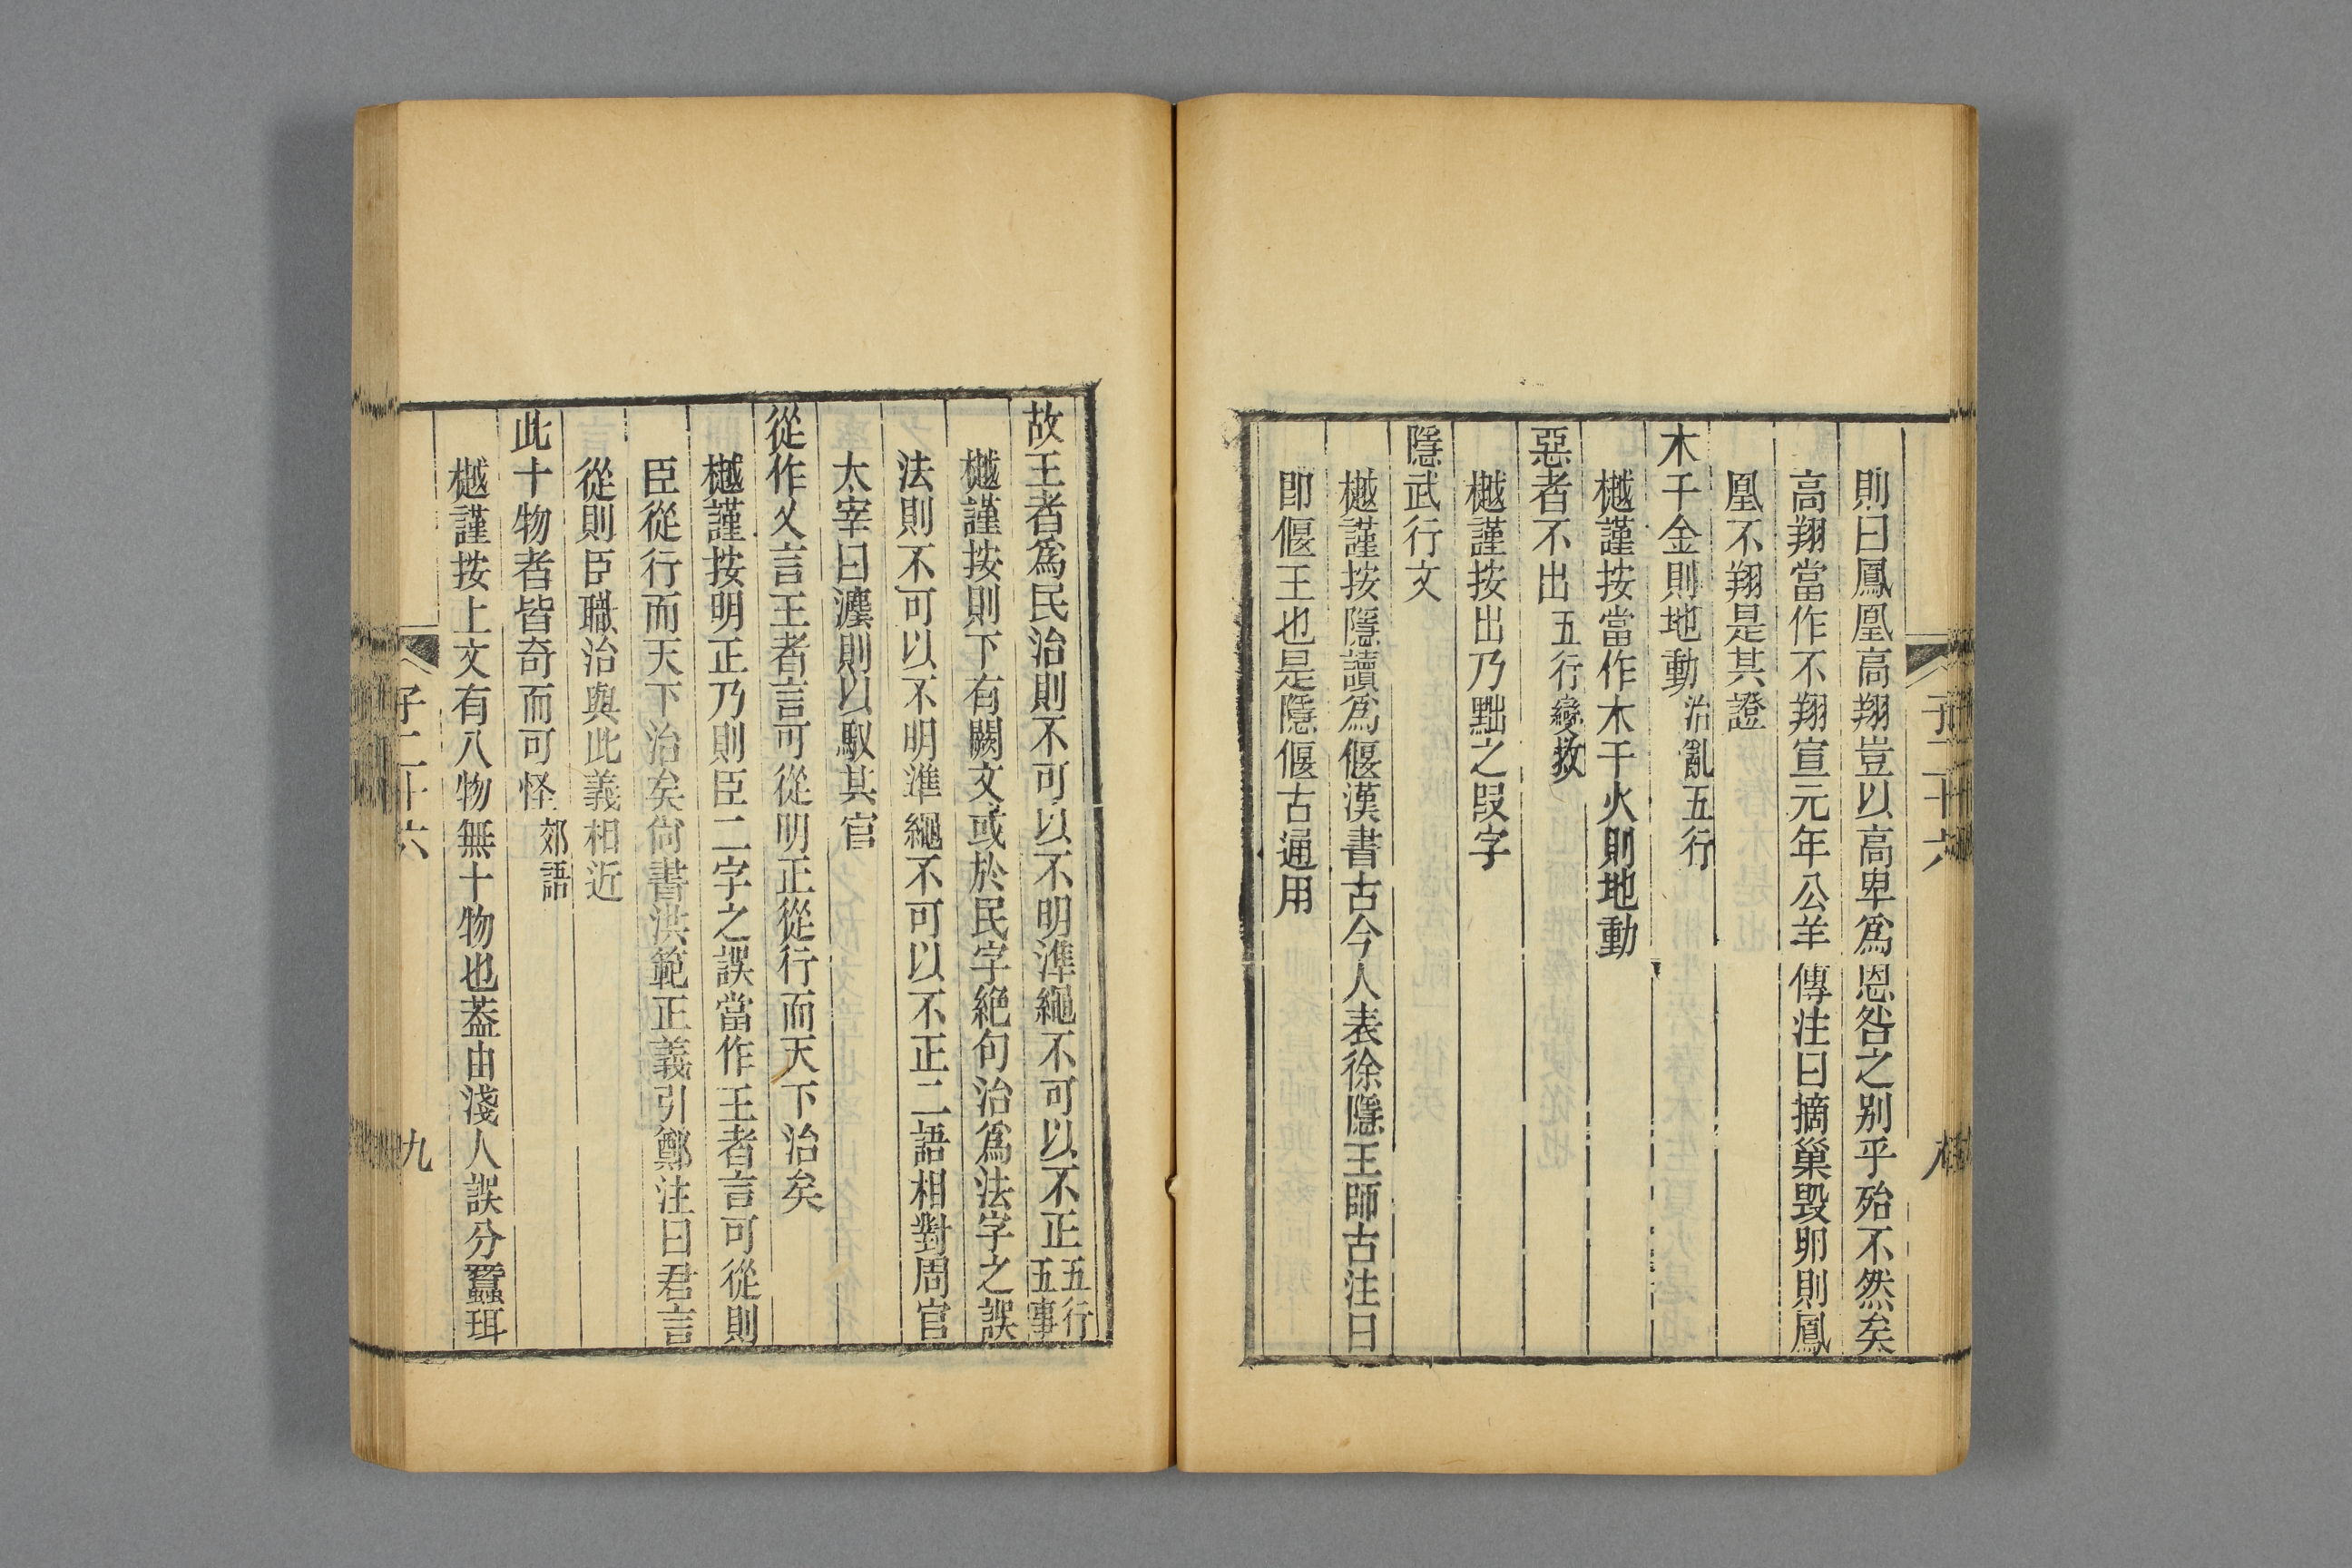 則曰鳳凰高翔豈以高卑爲恩咎之别乎殆不然矣
高翔當作不翔宣元年公羊傳注曰摘巢毁卵則鳳
凰不翔是其證
木干金則地動治亂五行
樾謹按當作木干火則地動
惡者不出五行變救
樾謹按出乃黜之叚字
隱武行文
樾謹按隱讀爲偃漢書古今人表徐隱王師古注曰
卽偃王也是隱偃古通用
故王者爲民治則不可以不明準繩不可以不正五行五事
樾謹按則下有闕文或於民字絶句治爲法字之誤
法則不可以不明準繩不可以不正二語相對周官
太宰曰灋則以馭其官
從作乂言王者言可從明正從行而天下治矣
樾謹按明正乃則臣二字之誤當作王者言可從則
臣從行而天下治矣尙書洪範正義引鄭注曰君言
從則臣職治與此義相近
此十物者皆奇而可怪郊語
樾謹按上文有八物無十物也葢由淺人誤分蠶珥
子二十六
九